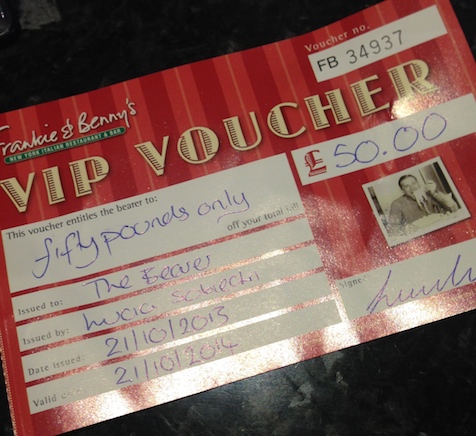 Voucher no.
FB 34937
Frankie & Benny's
NEW YORK ITALIAN RESTAURANT & BAR
VIP VOUCHER
£ 50.00
This voucher entitles the bearer to:
fifty pounds only
off your total bill
Issued to: The Bearer
Issued by: Lucia
Date issued: 21/10/2013
Valid 21/10/2014
Signed